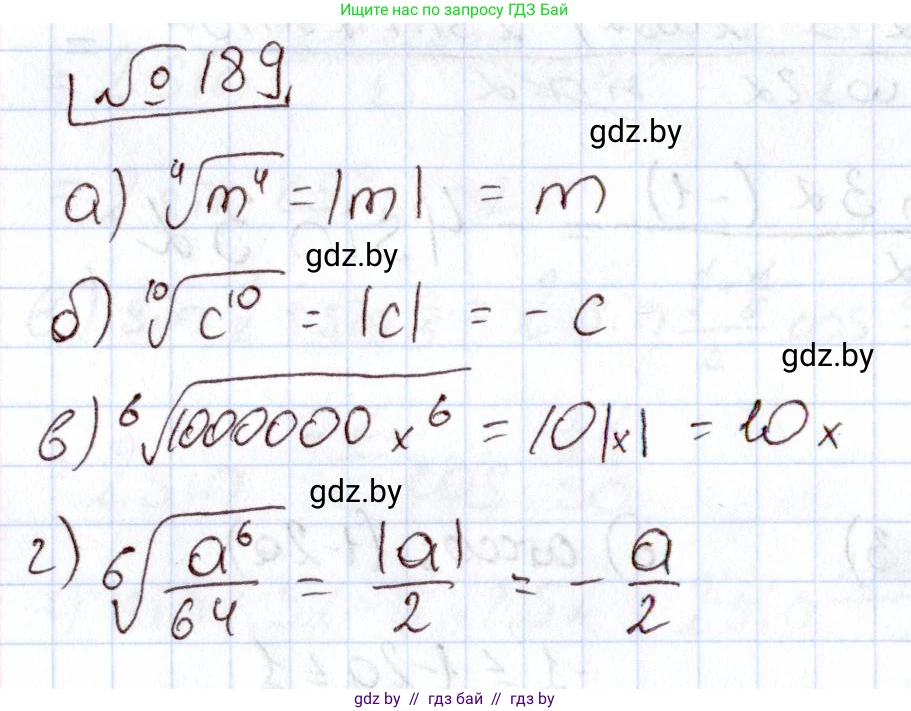 Ищите нас по запросу ГДЗ Бай
№ 189
gdz.by
а) ⁴√m⁴ = |m| = m
gdz.by
б) ¹⁰√c¹⁰ = |c| = - c
gdz.by
в) ⁶√1000000 x⁶ = 10|x| = 10 x
gdz.by
г) ⁶√a⁶/64 = |a|/2 = - a/2
gdz.by // гдз бай // gdz.by